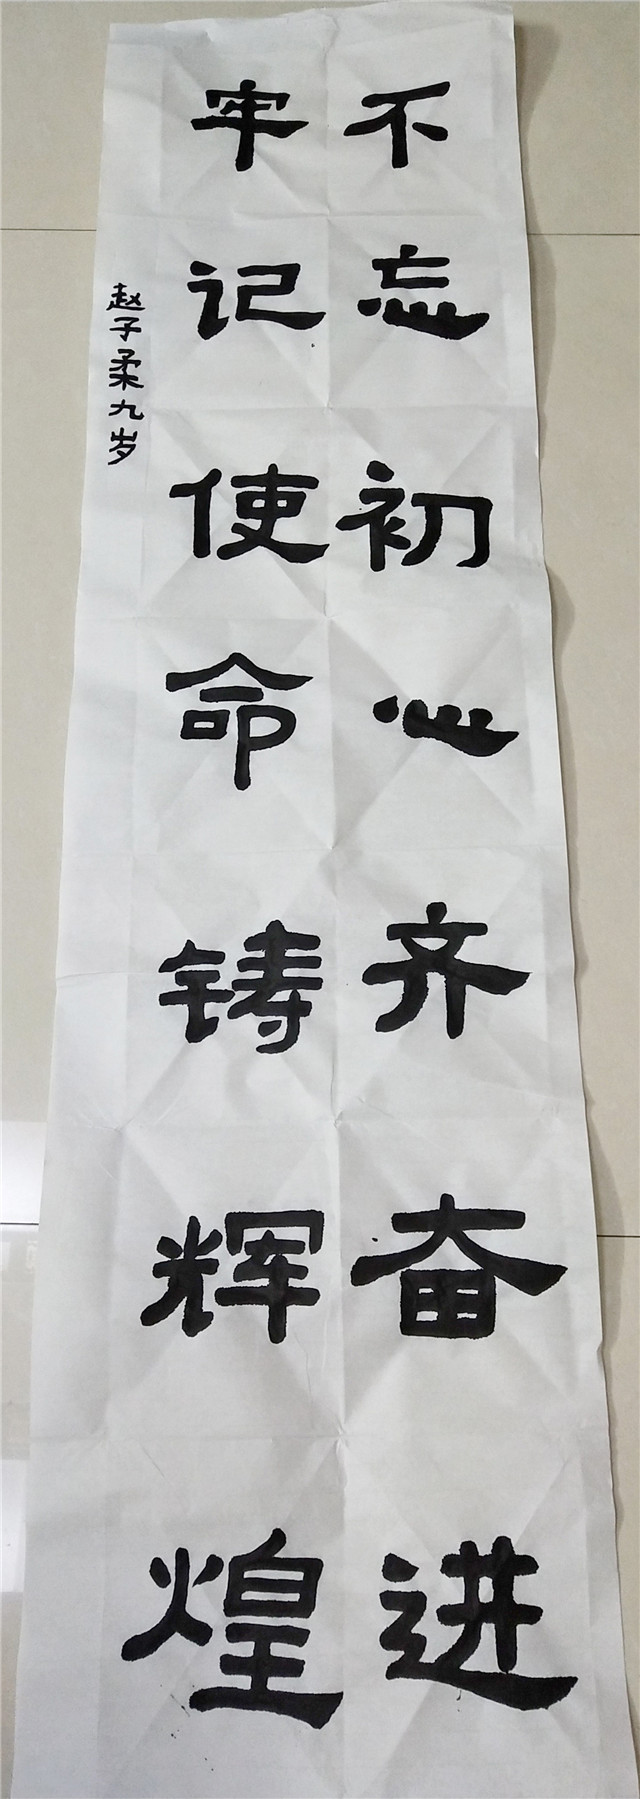 不忘初心齐奋进
牢记使命铸辉煌
赵子柔九岁